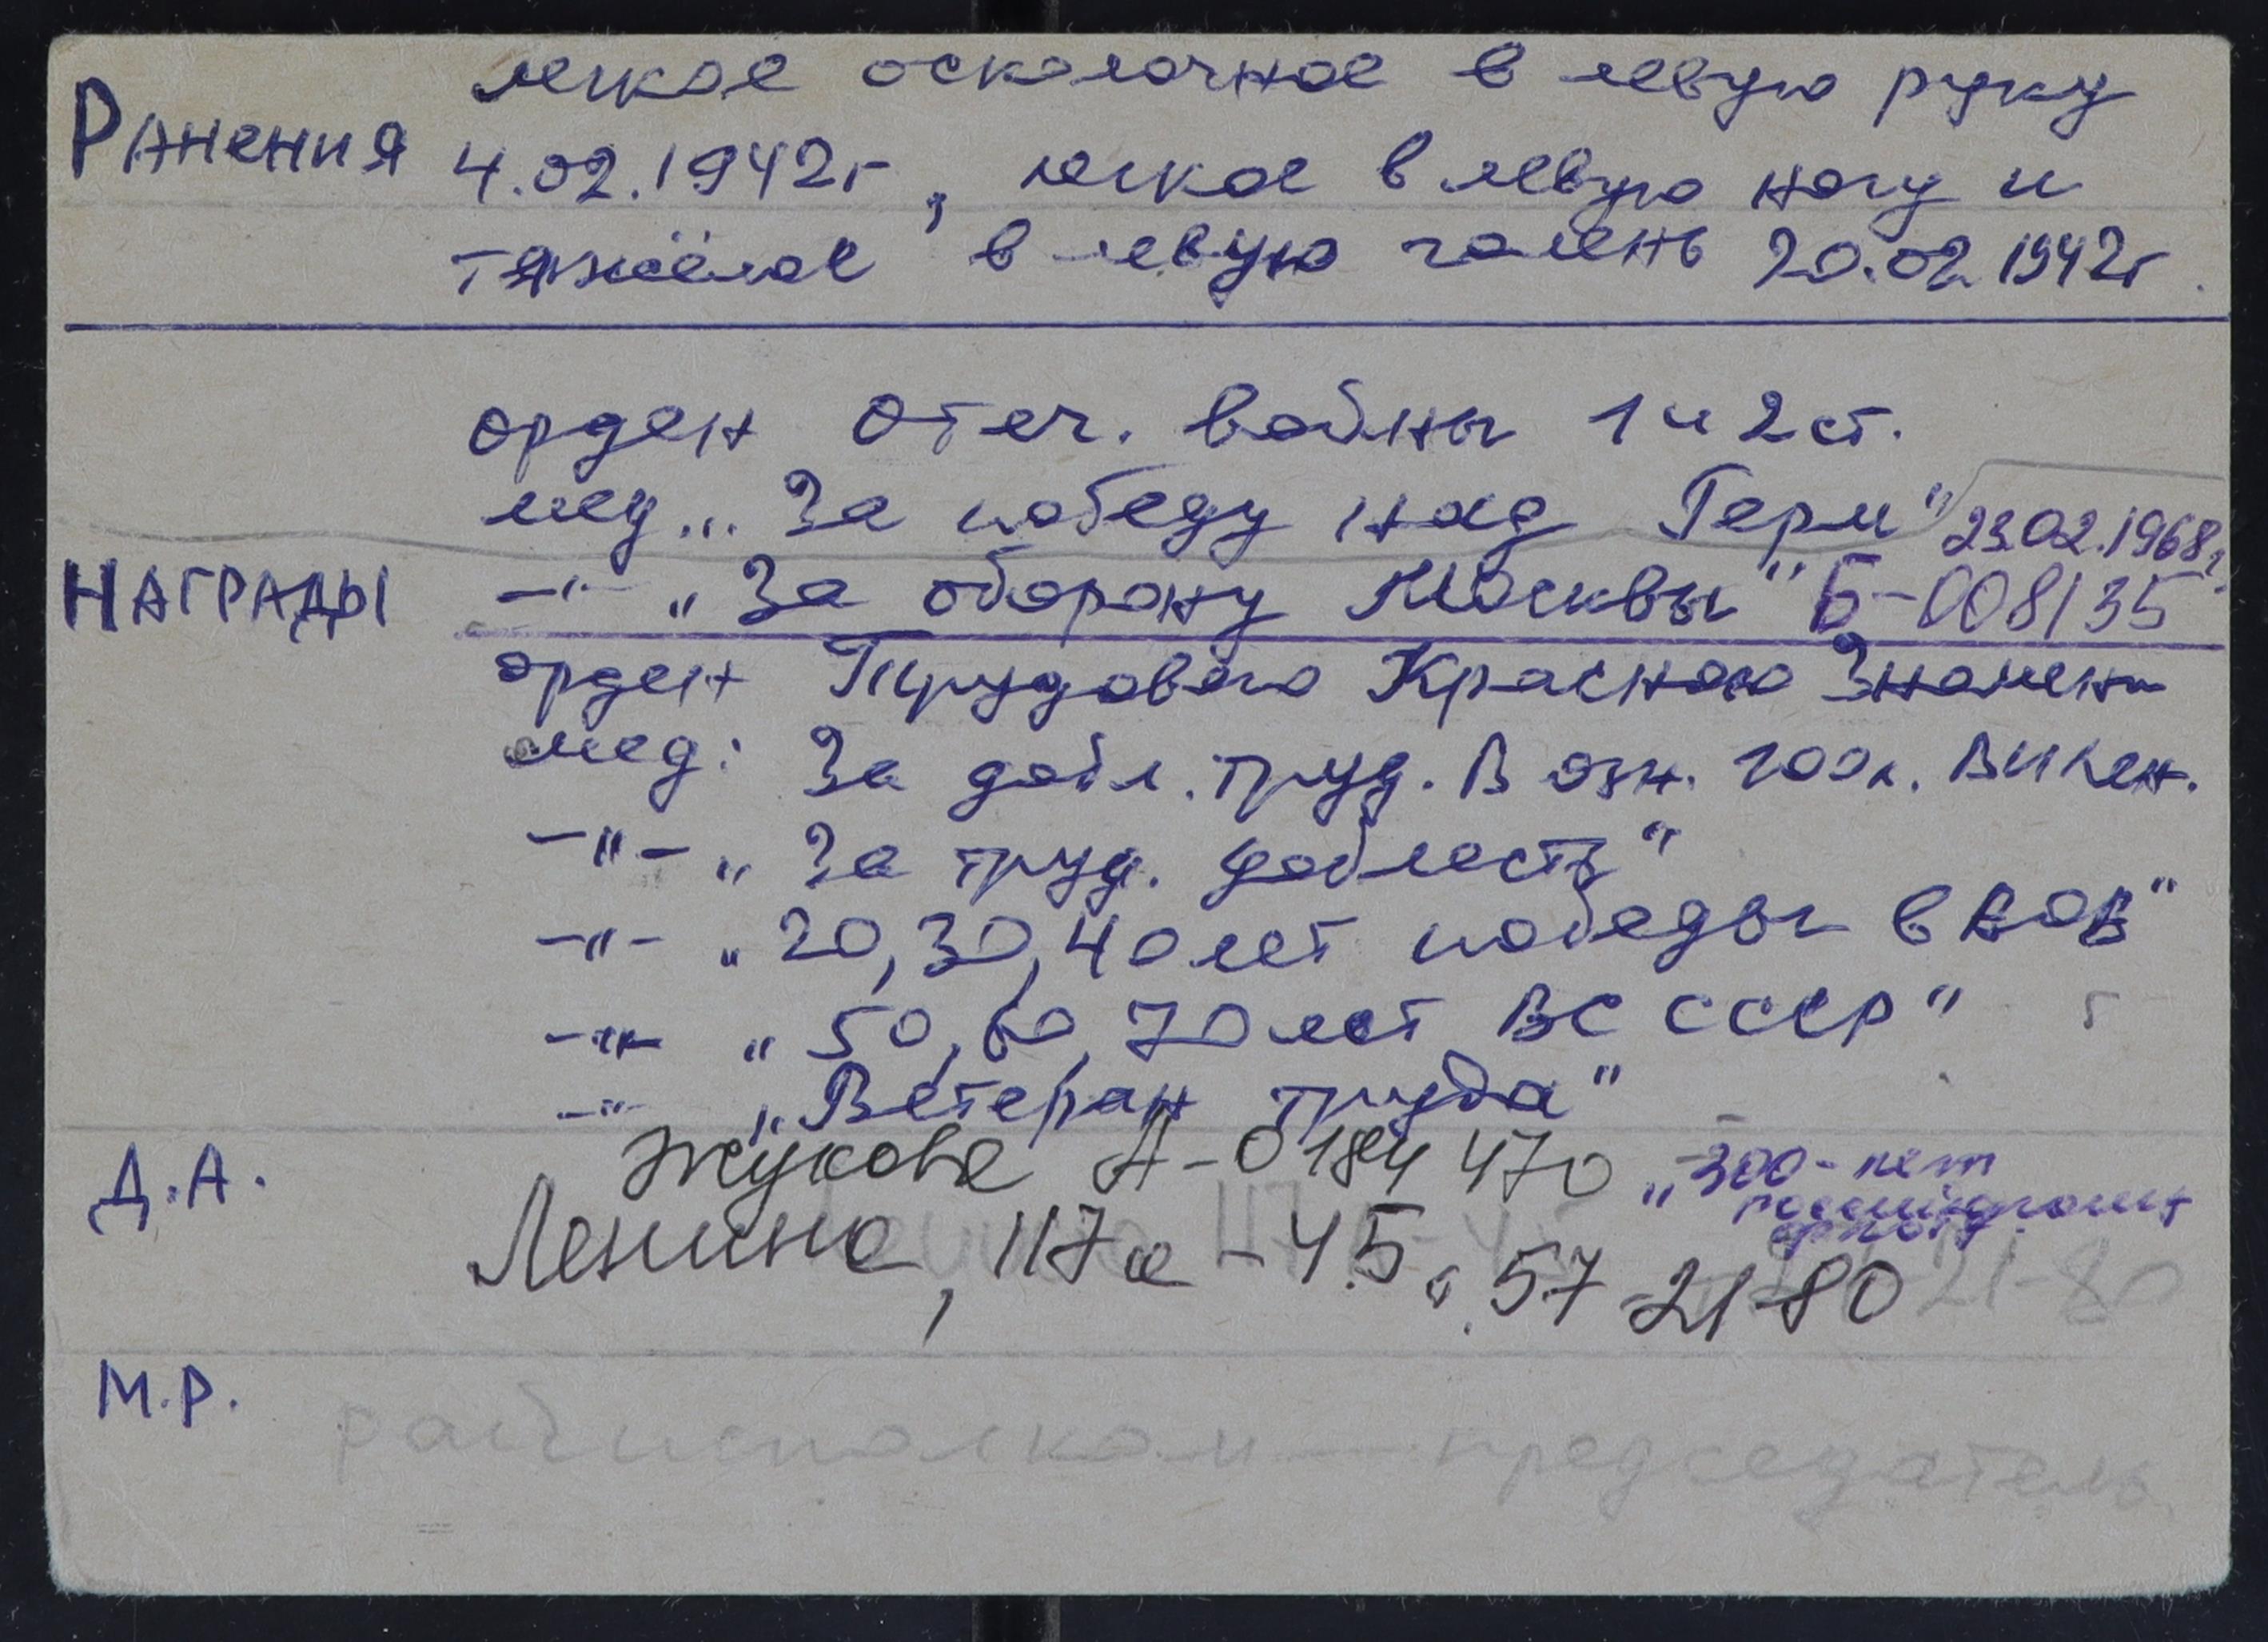 Ранения легкое осколочное в левую руку
4.02.1942г, легкое в левую ногу и
тяжёлое в левую голень 20.02.1942г.
орден Отеч. войны 1 и 2 ст.
мед... За победу над Герм" 23.02.1968г.
НАГРАДЫ -"- „За оборону Москвы" Б-008135
орден Трудового Красного Знамени
мед: За добл. труд. В озн. 100л. ВИ Лен.
-"- „За труд. доблесть"
-"- „20, 30, 40 лет победы в ВОВ"
-"- „50, 60, 70 лет ВС СССР"
-"- „Ветеран труда"
Жукова А-0184470 „300-лет
российском
флоту
Д.А. Ленина, 117а-45, 57-21-80
М.Р.
райисполком — председатель